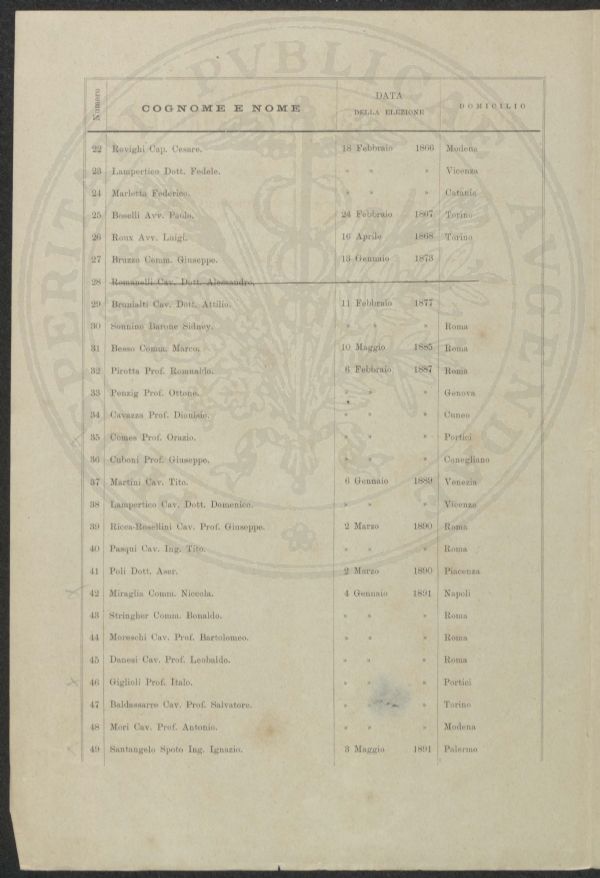 Numero COGNOME E NOME DATA DELLA ELEZIONE DOMICILIO
22 Rovighi Cap. Cesare. 18 Febbraio 1866 Modena
23 Lampertico Dott. Fedele. » » » Vicenza
24 Marletta Federico. » » » Catania
25 Boselli Avv. Paolo. 24 Febbraio 1867 Torino
26 Roux Avv. Luigi. 16 Aprile 1868 Torino
27 Bruzzo Comm. Giuseppe. 13 Gennaio 1873
28 Romanelli Cav. Dott. Alessandro. » » »
29 Brunialti Cav. Dott. Attilio. 11 Febbraio 1877
30 Sonnino Barone Sidney. » » » Roma
31 Besso Comm. Marco. 10 Maggio 1885 Roma
32 Pirotta Prof. Romualdo. 6 Febbraio 1887 Roma
33 Penzig Prof. Ottone. » » » Genova
34 Cavazza Prof. Dionisio. » » » Cuneo
35 Comes Prof. Orazio. » » » Portici
36 Cuboni Prof. Giuseppe. » » » Conegliano
37 Martini Cav. Tito. 6 Gennaio 1889 Venezia
38 Lampertico Cav. Dott. Domenico. » » » Vicenza
39 Ricca-Rosellini Cav. Prof. Giuseppe. 2 Marzo 1890 Roma
40 Pasqui Cav. Ing. Tito. » » » Roma
41 Poli Dott. Aser. 2 Marzo 1890 Piacenza
42 Miraglia Comm. Niccola. 4 Gennaio 1891 Napoli
43 Stringher Comm. Bonaldo. » » » Roma
44 Moreschi Cav. Prof. Bartolomeo. » » » Roma
45 Danesi Cav. Prof. Leobaldo. » » » Roma
46 Giglioli Prof. Italo. » » » Portici
47 Baldassarre Cav. Prof. Salvatore. » » » Torino
48 Mori Cav. Prof. Antonio. » » » Modena
49 Santangelo Spoto Ing. Ignazio. 3 Maggio 1891 Palermo